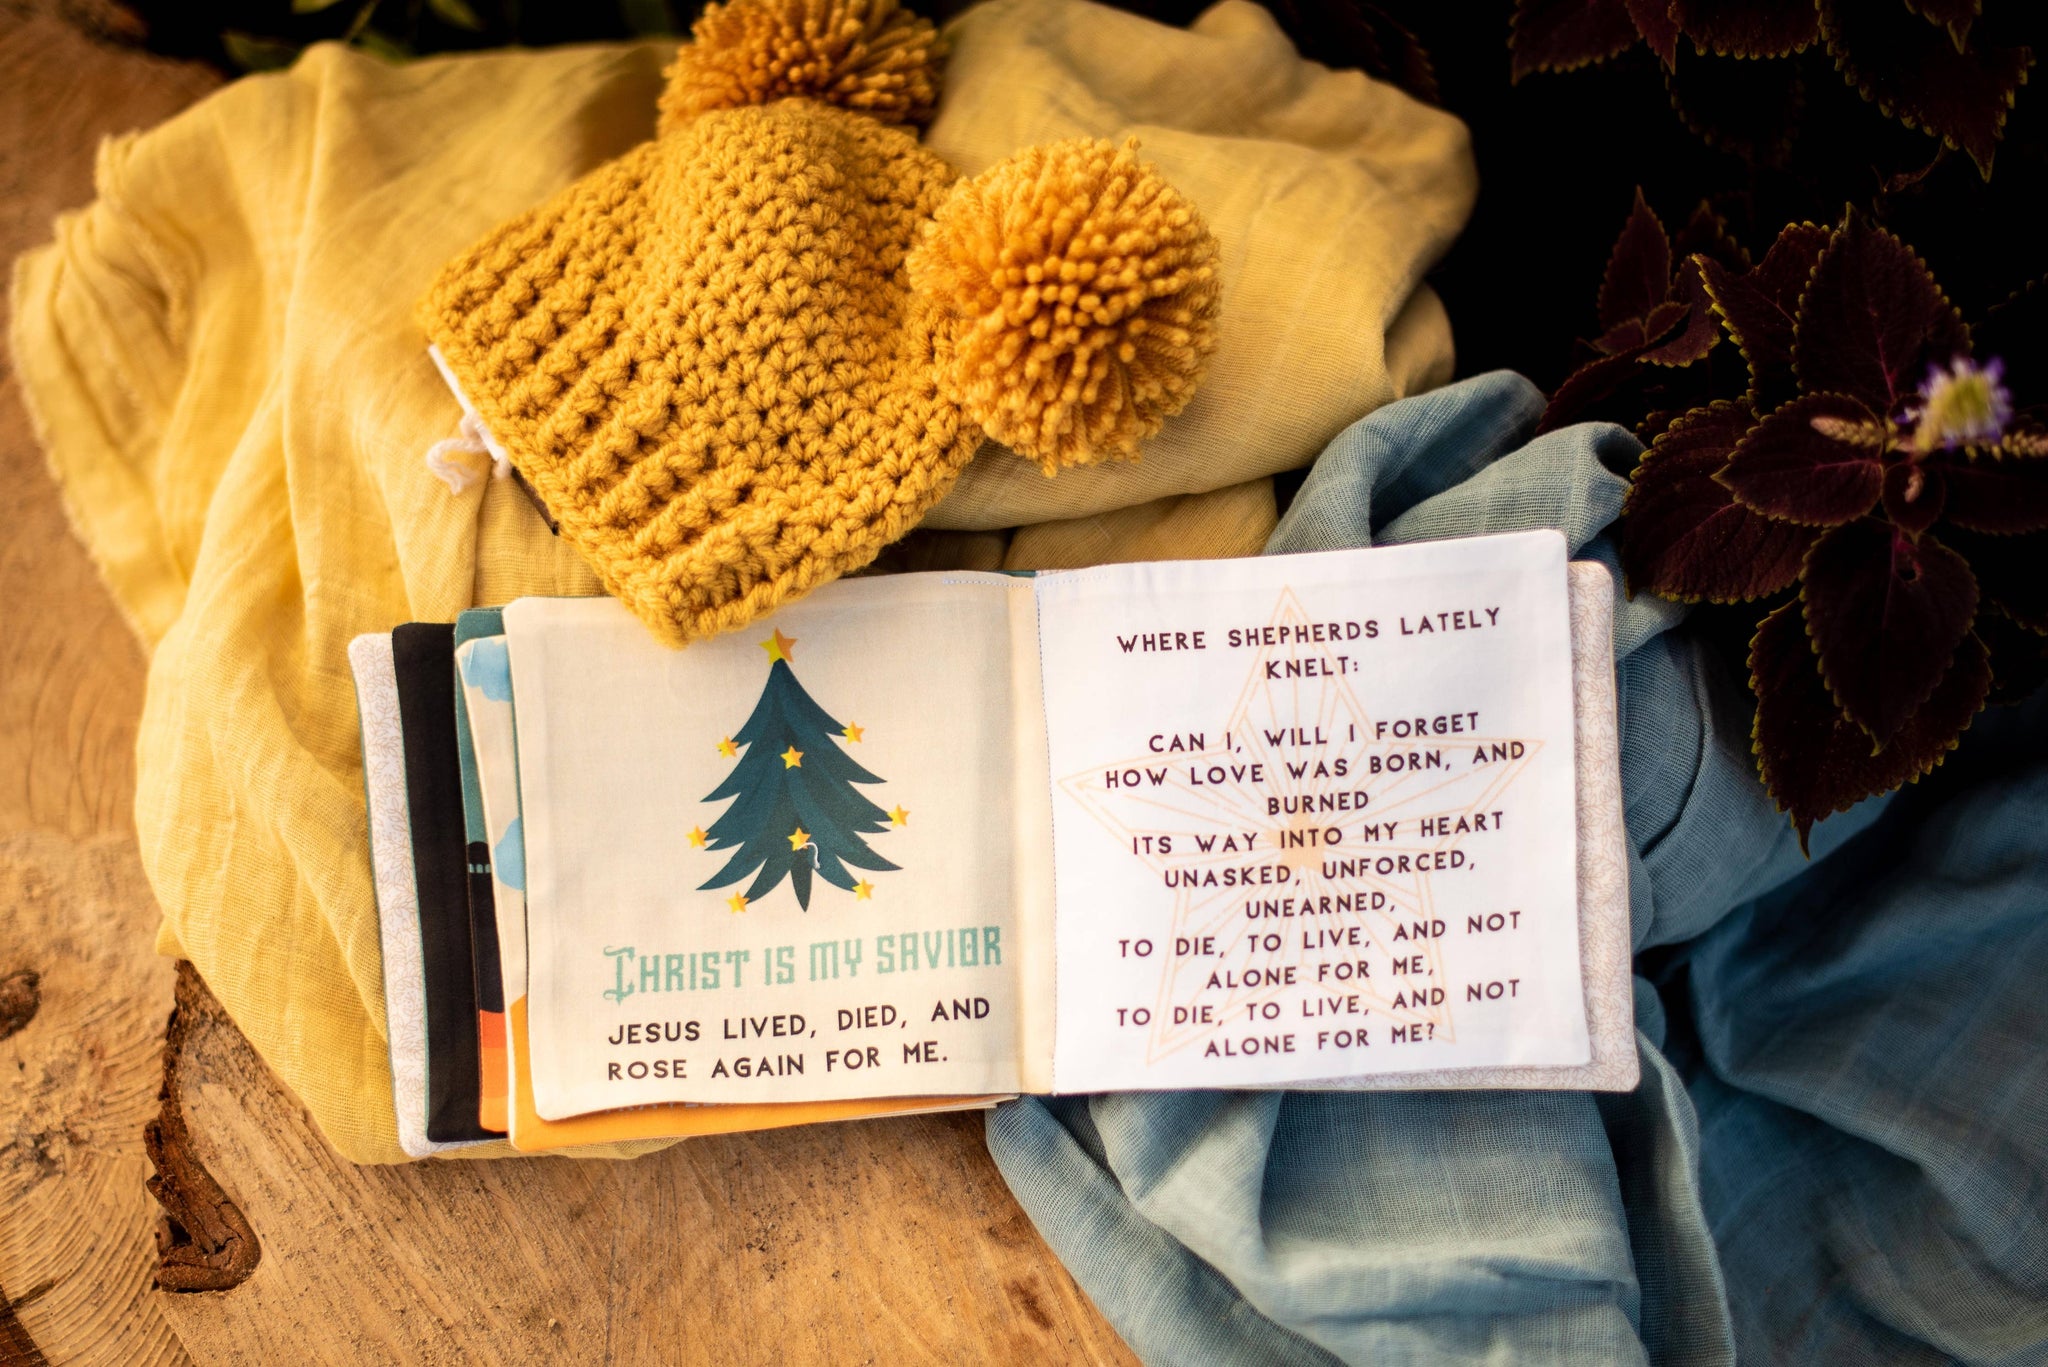 CHRIST IS MY SAVIOR
JESUS LIVED, DIED, AND
ROSE AGAIN FOR ME.
WHERE SHEPHERDS LATELY
KNELT:
CAN I, WILL I FORGET
HOW LOVE WAS BORN, AND
BURNED
ITS WAY INTO MY HEART
UNASKED, UNFORCED,
UNEARNED,
TO DIE, TO LIVE, AND NOT
ALONE FOR ME,
TO DIE, TO LIVE, AND NOT
ALONE FOR ME?